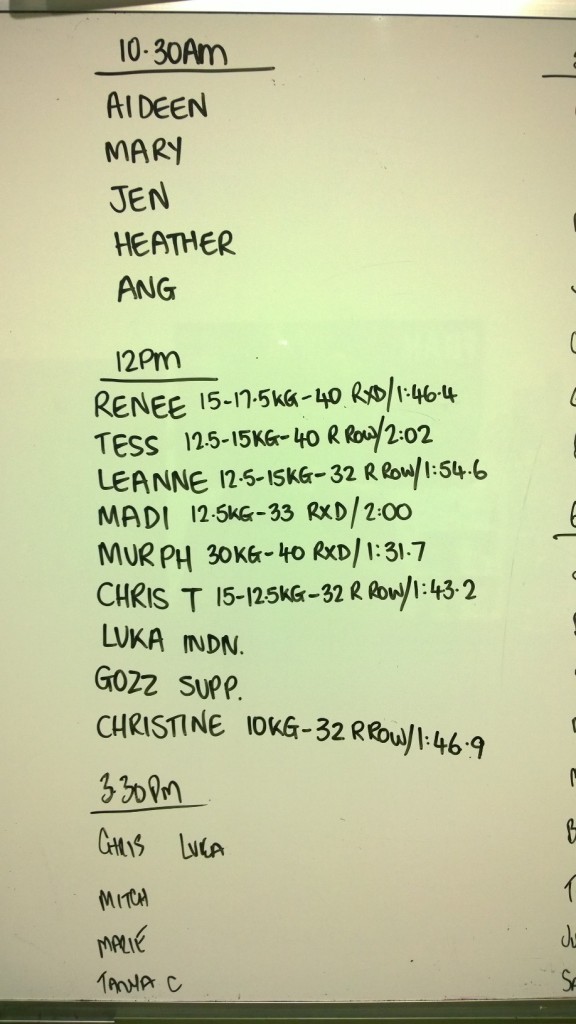 10.30AM
AIDEEN
MARY
JEN
HEATHER
ANG
12PM
RENEE 15-17.5KG-40 RXD/1:46.4
TESS 12.5-15KG-40 R ROW/2:02
LEANNE 12.5-15KG-32 R ROW/1:54.6
MADI 12.5KG-33 RXD/2:00
MURPH 30KG-40 RXD/1:31.7
CHRIS T 15-12.5KG-32 R ROW/1:43.2
LUKA INDN.
GOZZ SUPP.
CHRISTINE 10KG-32 R ROW/1:46.9
3.30PM
CHRIS LUKA
MITCH
MARIE
TANYA C